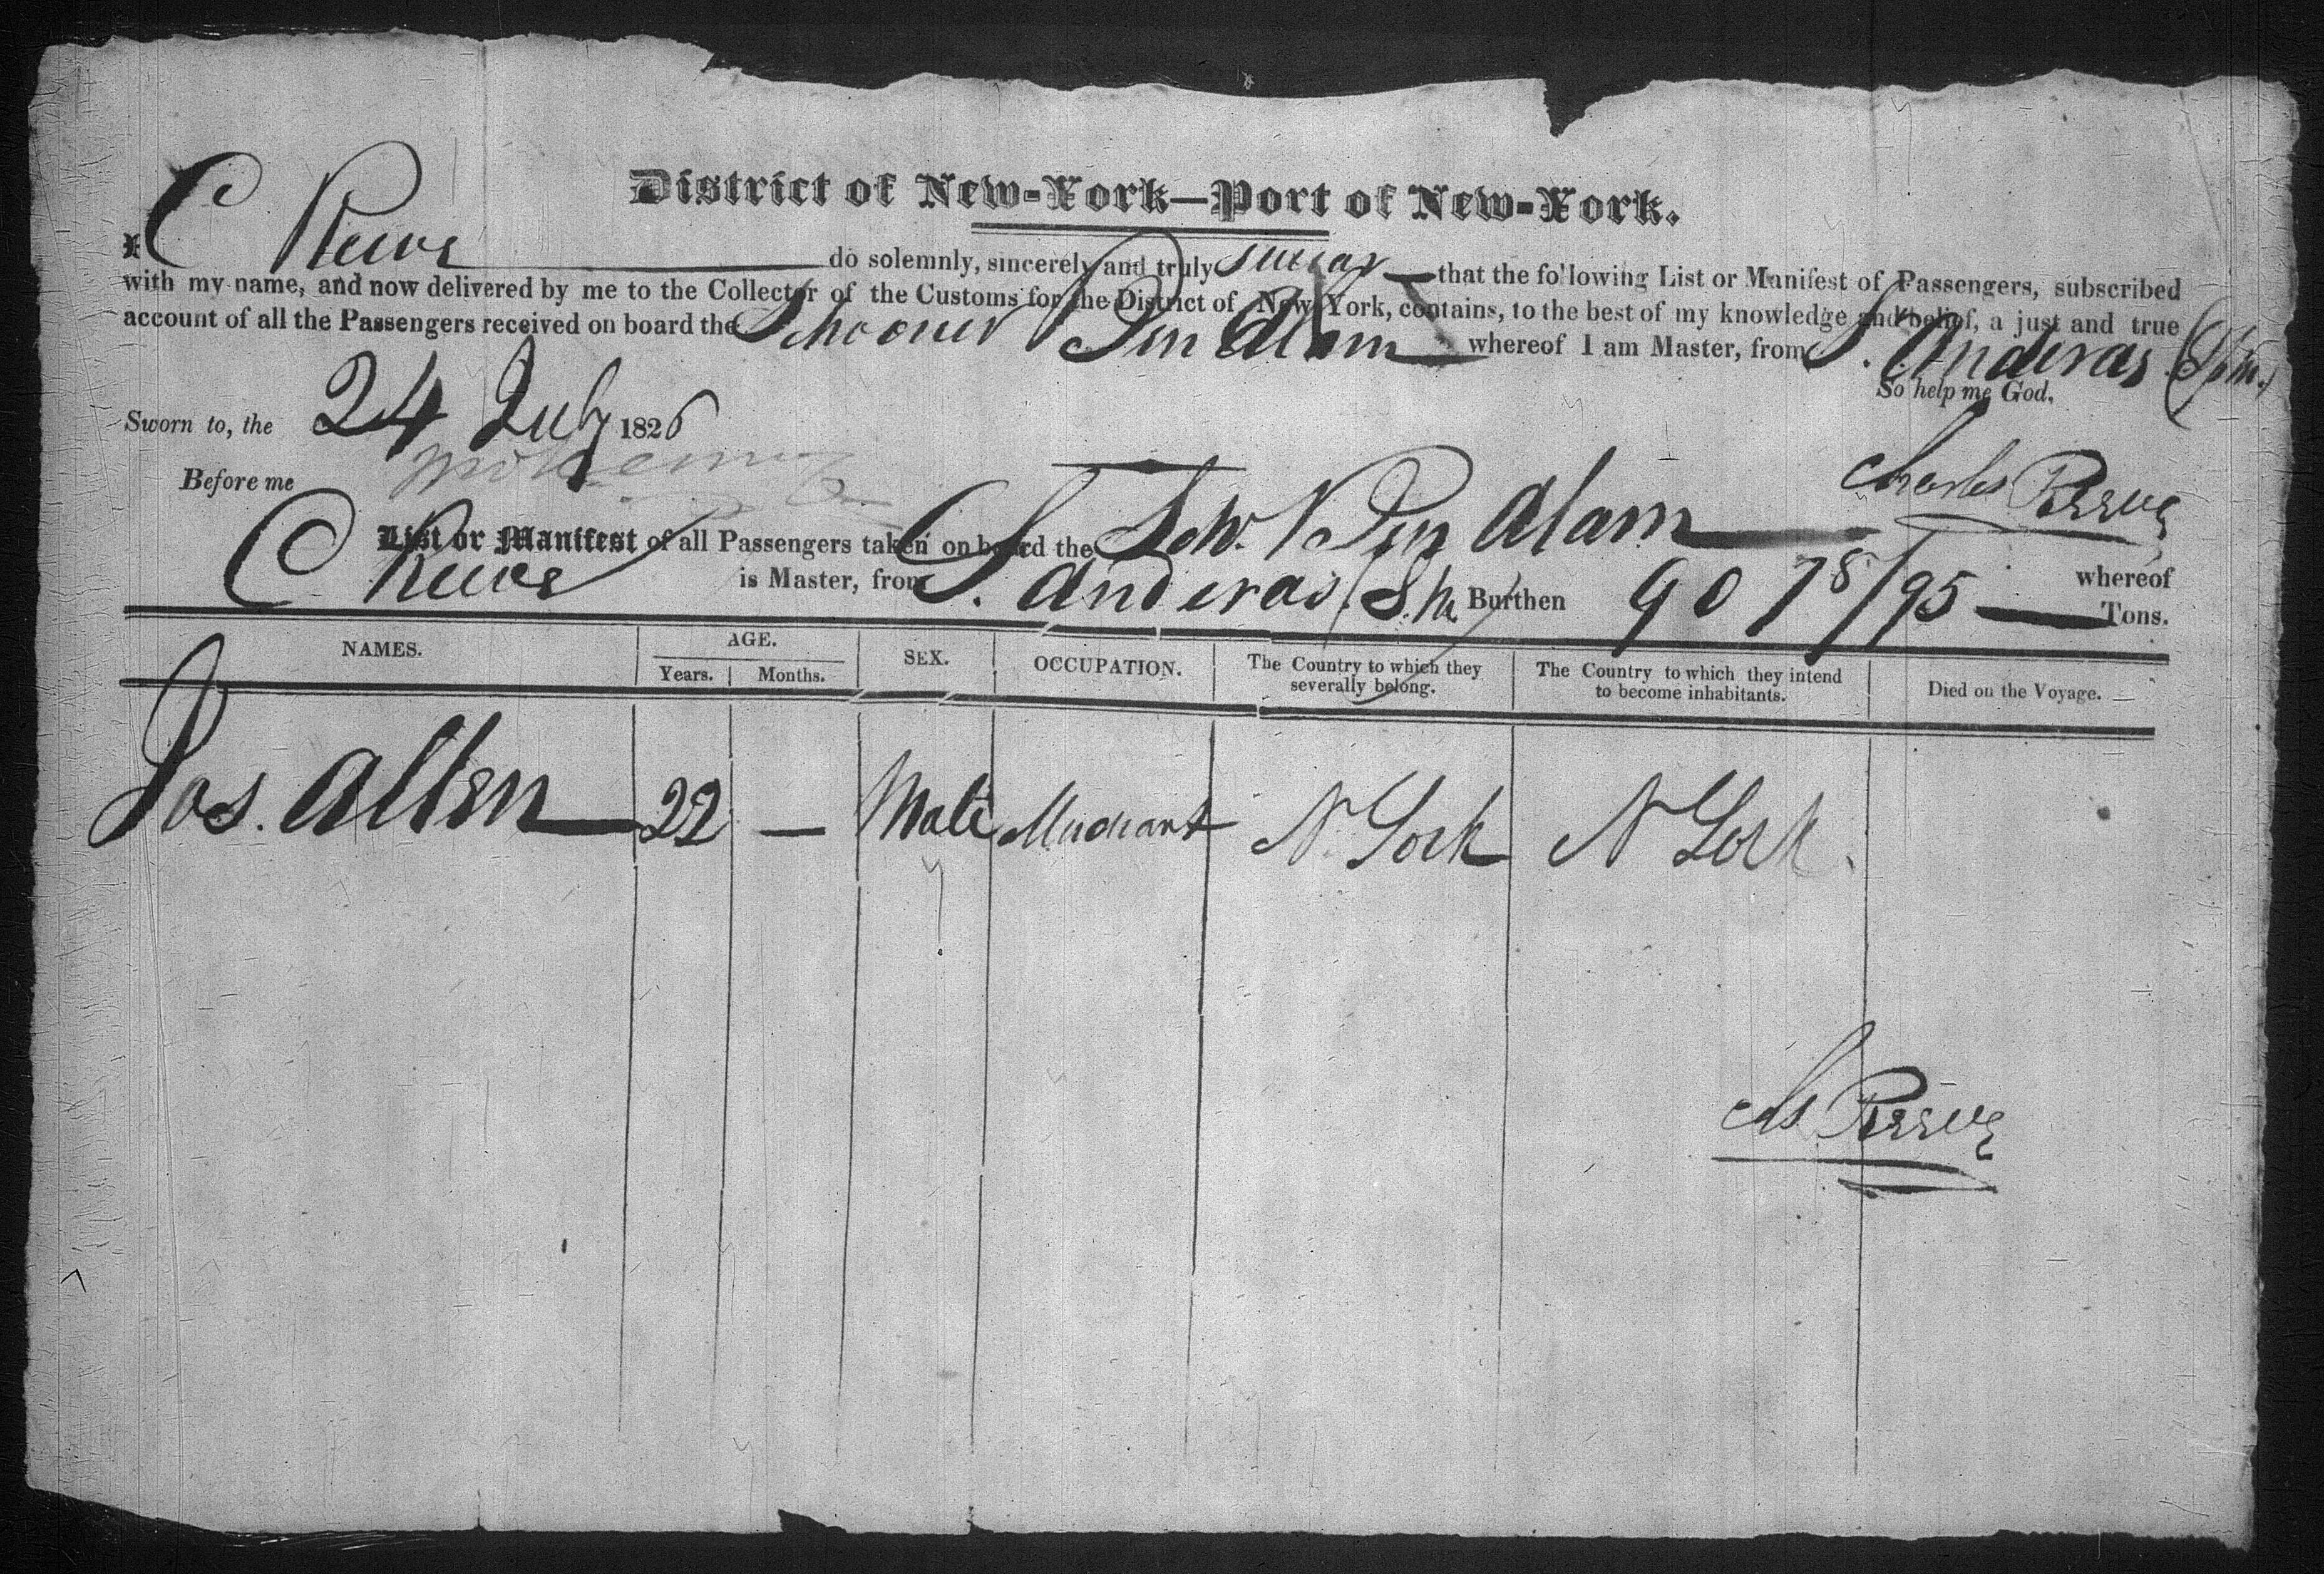 District of New-York—Port of New-York.
I C Reeve do solemnly, sincerely and truly swear that the following List or Manifest of Passengers, subscribed
with my name, and now delivered by me to the Collector of the Customs for the District of New York, contains, to the best of my knowledge and belief, a just and true
account of all the Passengers received on board the Schooner Ben Alam whereof I am Master, from S. Anderas
So help me God.
Sworn to, the 24 July 1826
Charles Reeve
Before me
List or Manifest of all Passengers taken on board the Schr. Ben Alam whereof
C Reeve is Master, from S. Anderas Burthen 90 78/95 Tons.
NAMES. AGE. SEX. OCCUPATION. The Country to which they severally belong. The Country to which they intend to become inhabitants. Died on the Voyage.
Years. Months.
Jos. Allen 22 — Male Merchant N. York N York
Chs Reeve